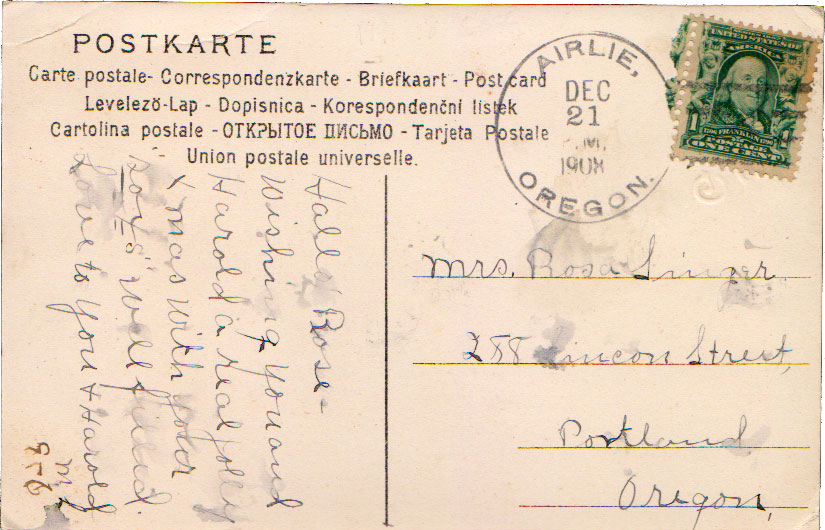 POSTKARTE
Carte postale - Correspondenzkarte - Briefkaart - Post card
Levelező-Lap - Dopisnica - Korespondenční lístek
Cartolina postale - ОТКРЫТОЕ ПИСЬМО - Tarjeta Postale
Union postale universelle.
AIRLIE,
DEC
21
M.
1908
OREGON.
UNITED STATES OF AMERICA
1
FRANKLIN
POSTAGE
ONE CENT
Hallo Rose -
Wishing you and
Harold a real jolly
Xmas with your
"sox" well filled.
Love to you & Harold
Mrs. Rosa Singer
288 Lincon Street,
Portland
Oregon,